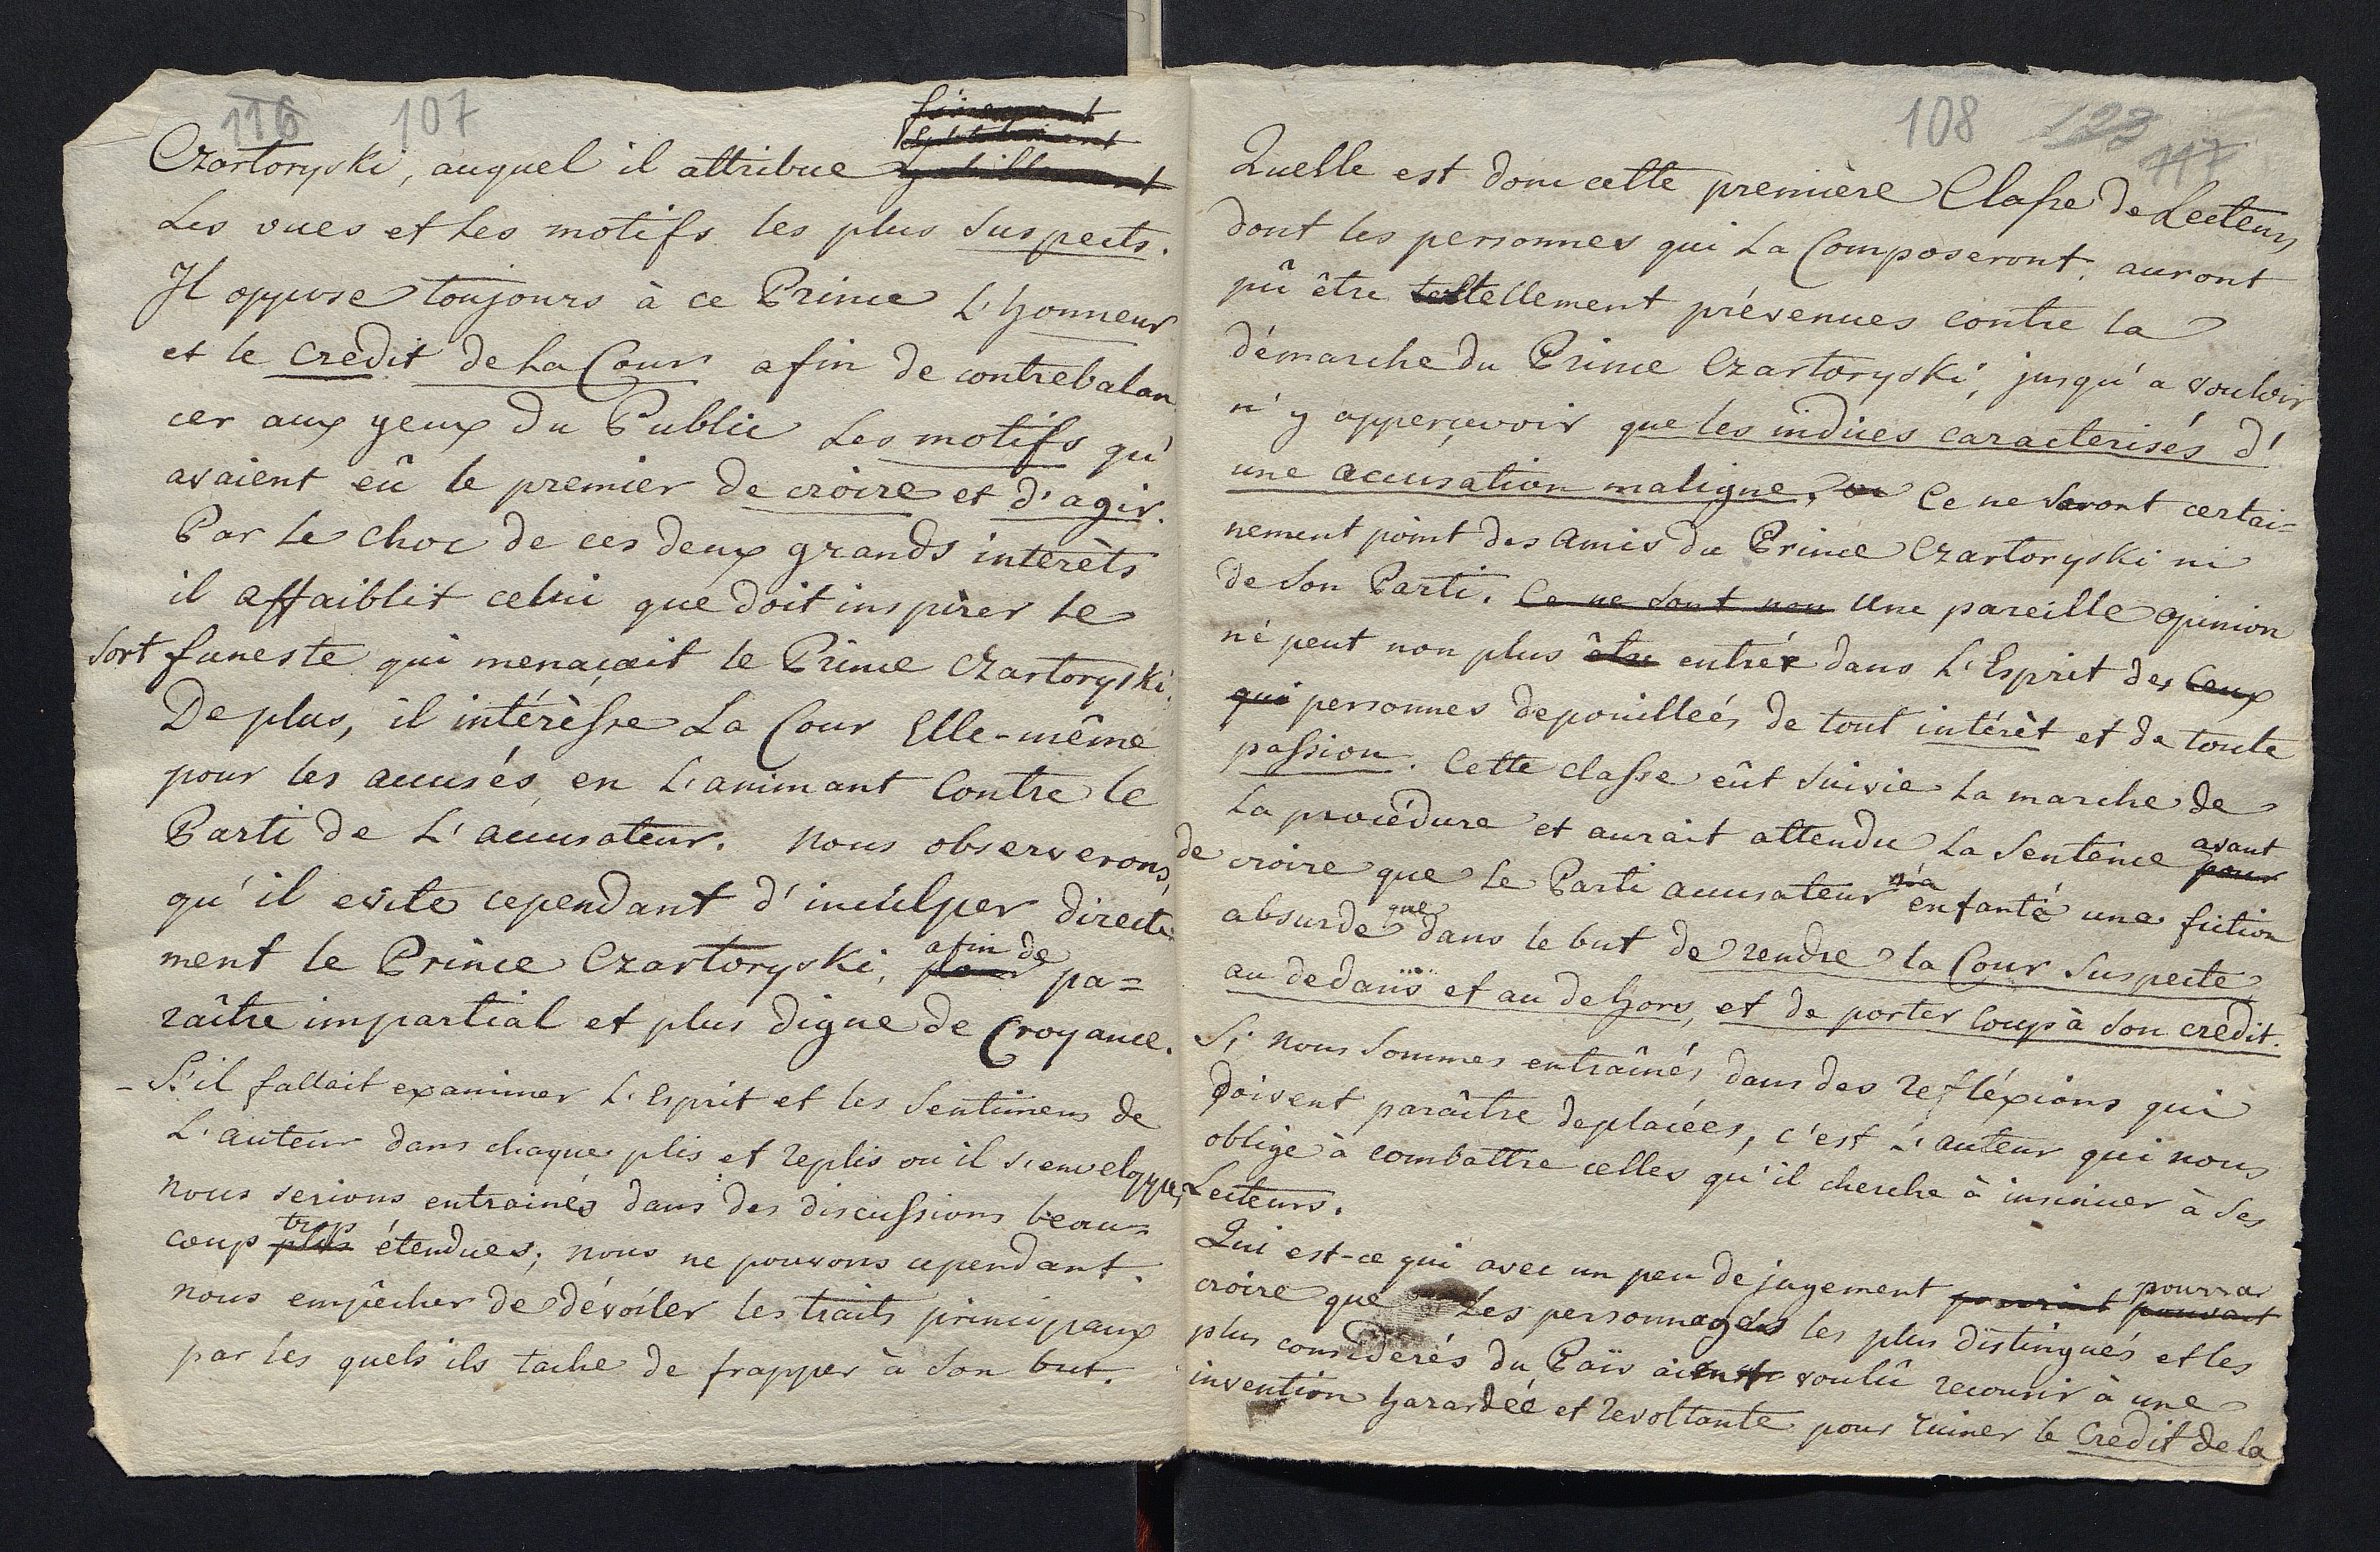 116 107
Czartoryski, auquel il attribue
les vues et les motifs les plus suspects.
Il oppose toujours à ce Prince l'honneur
et le credit de la Cour afin de contrebalan
cer aux yeux du Public les motifs qu'
avaient eû le premier de croire et d'agir.
Par le choc de ces deux grands interèts
il affaiblit celui que doit inspirer le
sort funeste qui menaçait le Prince Czartoryski.
De plus, il intérèsse la Cour Elle-même
pour les accusés, en l'animant contre le
Parti de l'accusateur. Nous observerons,
qu'il evite cependant d'inculper directe
afin de
ment le Prince Czartoryski, pour pa=
raître impartial et plus digne de Croyance.
- S'il fallait examiner l'Esprit et les Sentimens de
l'auteur dans chaque plis et replis ou il s'enveloppe,
nous serions entrainés dans des discussions beau=
trop
coup plus étendues; nous ne pouvons cependant
nous empêcher de dévoiler les traits principaux
par les quels ils tache de frapper à son but.
108 123
117
Quelle est donc cette première Classe de Lecteurs
dont les personnes qui la Composeront, auront
pû être tellement prévenues contre la
démarche du Prince Czartoryski, jusqu'a vouloir
n'y apperçevoir que les indices caracterisés d'
une accusation maligne, Ce ne seront certai-
nement point des Amis du Prince Czartoryski ni
de son Parti. Ce ne sont non Une pareille opinion
ne peut non plus être entrér dans l'Esprit des Ceux
qui personnes depouilleés de tout intérèt et de toute
passion. Cette classe eût suivie la marche de
la procédure et aurait attendu la Sentence avant
pour
de croire que le Parti accusateur n'a enfanté une fiction
absurde que dans le but de rendre la Cour suspecte
au dedans et au dehors, et de porter coup à son credit.
Si nous sommes entraînés dans des refléxions qui
doivent paraître deplacées, c'est l'auteur qui nous
oblige à combattre celles qu'il cherche à insinuer à ses
Lecteurs.
Qui est-ce qui avec un peu de jugement pourrait pourra
pouvant
croire que Les personnages les plus distingués et les
plus considerés du Païs aient voulû recourir à une
invention hazardéé et revoltante pour ruiner le Credit de la